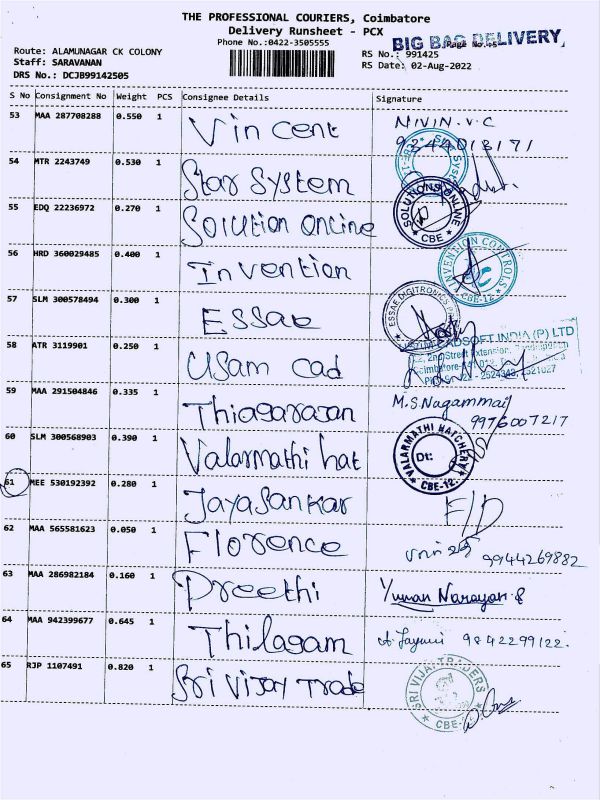 THE PROFESSIONAL COURIERS, Coimbatore
Delivery Runsheet - PCX
Phone No.:0422-3505555
BIG BAG DELIVERY
Route: ALAMUNAGAR CK COLONY
Staff: SARAVANAN
DRS No.: DCJB99142505
RS No.: 991425
RS Date: 02-Aug-2022
S No Consignment No Weight PCS Consignee Details Signature
53 MAA 287708288 0.550 1 Vincent NIVIN.V.C
54 MTR 2243749 0.530 1 Star System
55 EDQ 22236972 0.270 1 Solution online SOLUTIONS ONLINE * CBE *
56 HRD 360029485 0.400 1 Invention INVENTION CONTROLS CBE-12
57 SLM 300578494 0.300 1 Essae ESSAE DIGITRONICS
58 ATR 3119901 0.250 1 Usam cad CADSOFT INDIA (P) LTD
2nd Street Extension,
59 MAA 291504846 0.335 1 Thiagarasan M.S.Nagammai
9976007217
60 SLM 300568903 0.390 1 Valarmathi hat VALARMATHI HATCHERY Dt: * CBE-12 *
61 MEE 530192392 0.280 1 Jayasankar F/D
62 MAA 565581623 0.050 1 Florence 9944269882
63 MAA 286982184 0.160 1 Preethi Narayan
64 MAA 942399677 0.645 1 Thilagam 9842299122.
65 RJP 1107491 0.820 1 Sri Vijay Trade SRI VIJAY TRADERS * CBE